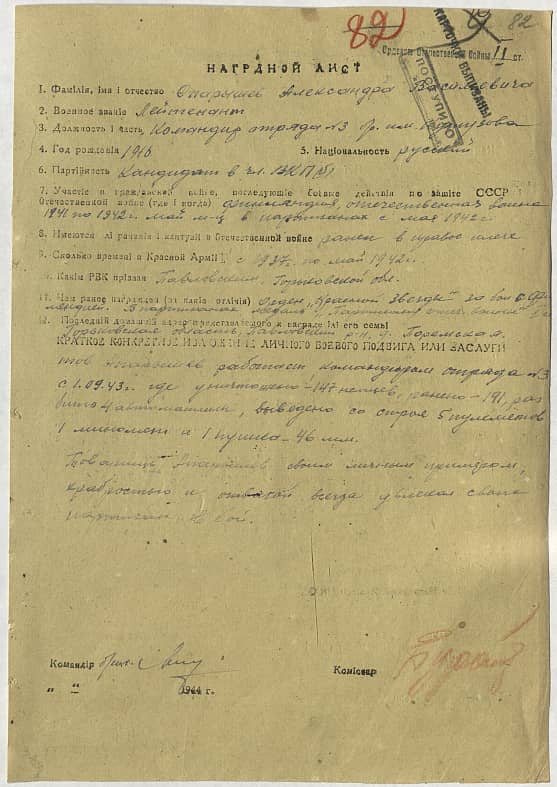 82 82
Орденом Отечественной Войны II ст.
КАРТОЧКИ ВЫПИСАНЫ
ПОСТУПИЛО
НАГРАДНОЙ ЛИСТ
1. Фамілія, імя і отчество Александра Васильевича
2. Военное званіе Лейтенант
3. Должность і часть Командир отряда №3 бр. им. Кутузова
4. Год рождения 1916 5. Національность русский
6. Партійность Кандидат в чл. ВКП(б)
7. Участіе в гражданской войне, последующіе боевые действія по защіте СССР в
Отечественной войне (где і когда) Финляндия, отечественная война
1941 по 1942 г. май м-ц в партизанах с мая 1942 г.
8. Имеются лі раненія і контузіі в Отечественной войне ранен в правое плечо
9. Сколько временi в Красной Арміі с 1937 г. по май 1942 г.
10. Какім РВК прізван Павловским, Горьковской обл.
11. Чем ранее награжден (за какіе отлічія) Орден „Красной Звезды" за бои с Фин-
ляндией. В партизанах медаль „Партизану отеч. войны"
12. Последній домашній адрес представляемого к награде ілі его семьі
Горьковская область, Павловский р-н,
КРАТКОЕ КОНКРЕТНОЕ ИЗЛОЖЕНИЕ ЛИЧНОГО БОЕВОГО ПОДВИГА ИЛИ ЗАСЛУГИ
тов. работает командиром отряда №3
с 1.09.43 г. где уничтожено - 147 немцев, ранено - 191, раз
бито 4 автомашины, выведено со строя 5 пулеметов
1 миномет и 1 пушка - 46 мм.
Товарищ своим личным примером,
храбростью и отвагой всегда увлекая своих
партизан в бой.
Командір Комісcар
„ " 1944 г.